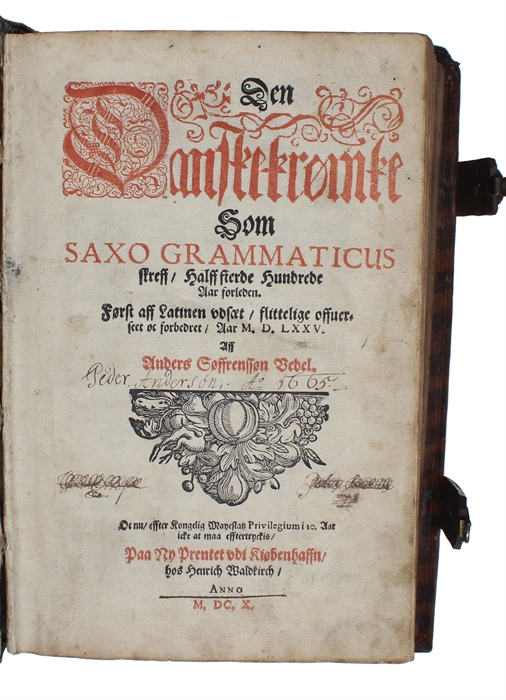 Den
Danske krønike
Som
SAXO GRAMMATICUS
skreff / Halff fierde Hundrede
Aar forleden.
Først aff Latinen vdsæt / flittelige offuer-
seet oc forbedret / Aar M. D. LXXV.
Aff
Anders Søffrenssøn Vedel.
Peder Andersøn. Aº 1665.
Oc nu / effter Kongelig Mayestatz Privilegium i 10. Aar
icke at maa efftertryckis /
Paa Ny Prentet vdi Kiøbenhaffn /
hos Henrich Waldkirch /
ANNO
M. DC. X.